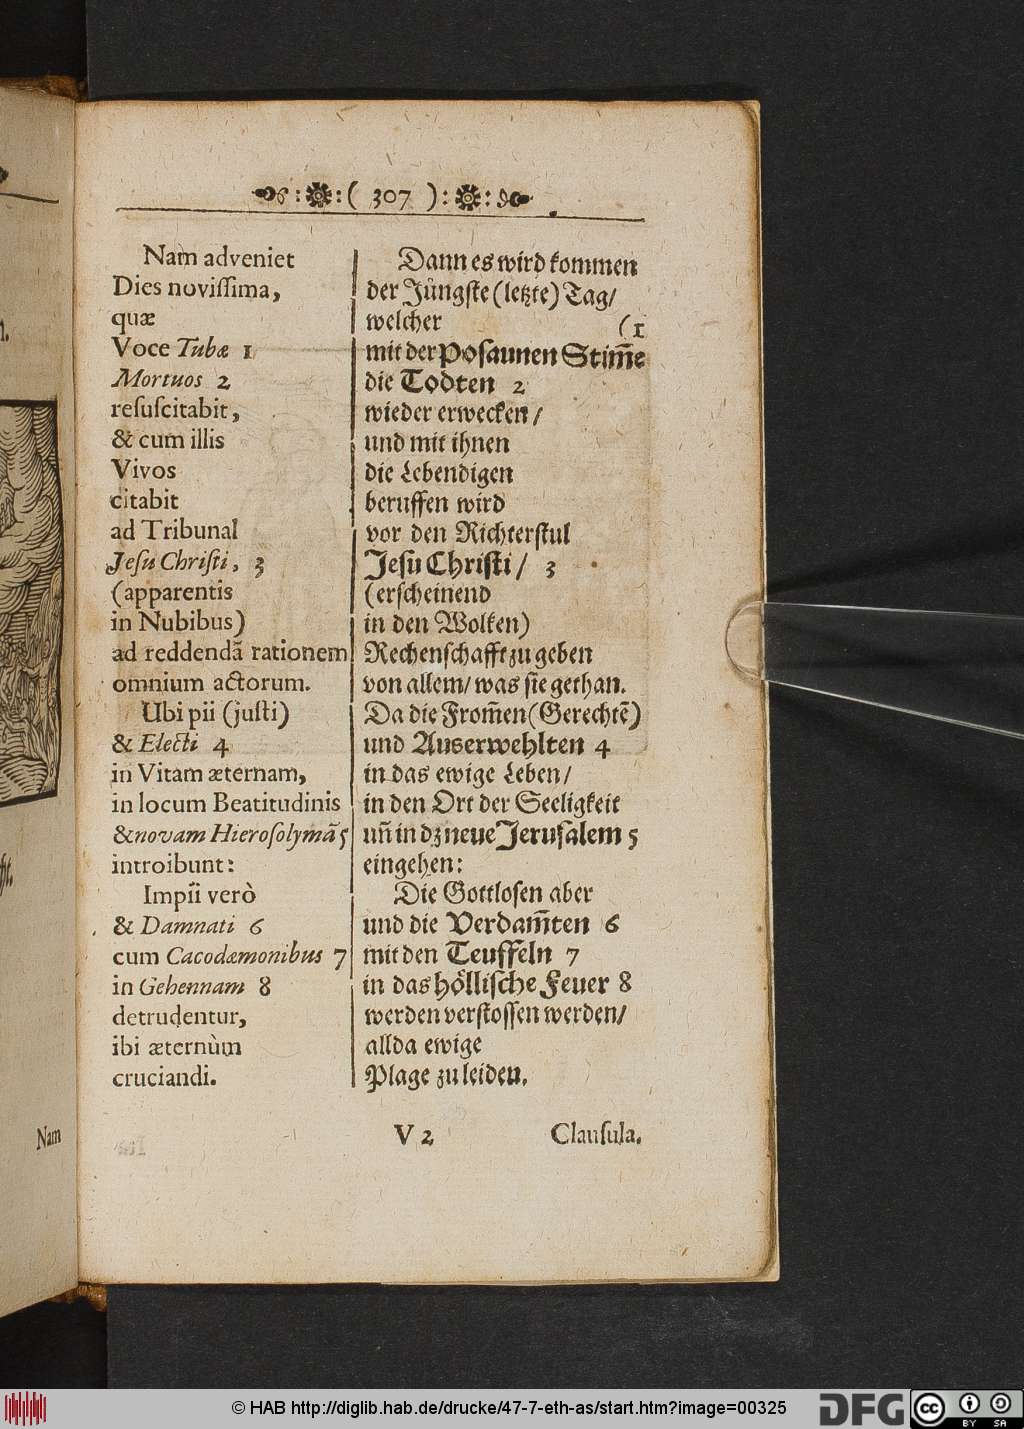 ( 307 )
Nam adveniet
Dies noviſſima,
quæ
Voce Tubæ 1
Mortuos 2
reſuſcitabit,
& cum illis
Vivos
citabit
ad Tribunal
Jeſu Chriſti, 3
(apparentis
in Nubibus)
ad reddendã rationem
omnium actorum.
Ubi pii (juſti)
& Electi 4
in Vitam æternam,
in locum Beatitudinis
& novam Hieroſolymã 5
introibunt:
Impii verò
& Damnati 6
cum Cacodæmonibus 7
in Gehennam 8
detrudentur,
ibi æternùm
cruciandi.
Dann es wird kommen
der Jüngſte (letzte) Tag/
welcher (1
mit der Poſaunen Stim̃e
die Todten 2
wieder erwecken/
und mit ihnen
die Lebendigen
beruffen wird
vor den Richterſtul
Jeſu Chriſti/ 3
(erſcheinend
in den Wolken)
Rechenſchafft zu geben
von allem/ was ſie gethan.
Da die From̃en (Gerechtẽ)
und Auserwehlten 4
in das ewige Leben/
in den Ort der Seeligkeit
uñ in dz neue Jeruſalem 5
eingehen:
Die Gottloſen aber
und die Verdam̃ten 6
mit den Teuffeln 7
in das höllische Feuer 8
werden verſtoſſen werden/
allda ewige
Plage zu leiden.
V 2 Clauſula.
Nam
© HAB http://diglib.hab.de/drucke/47-7-eth-as/start.htm?image=00325
DFG
cc BY SA